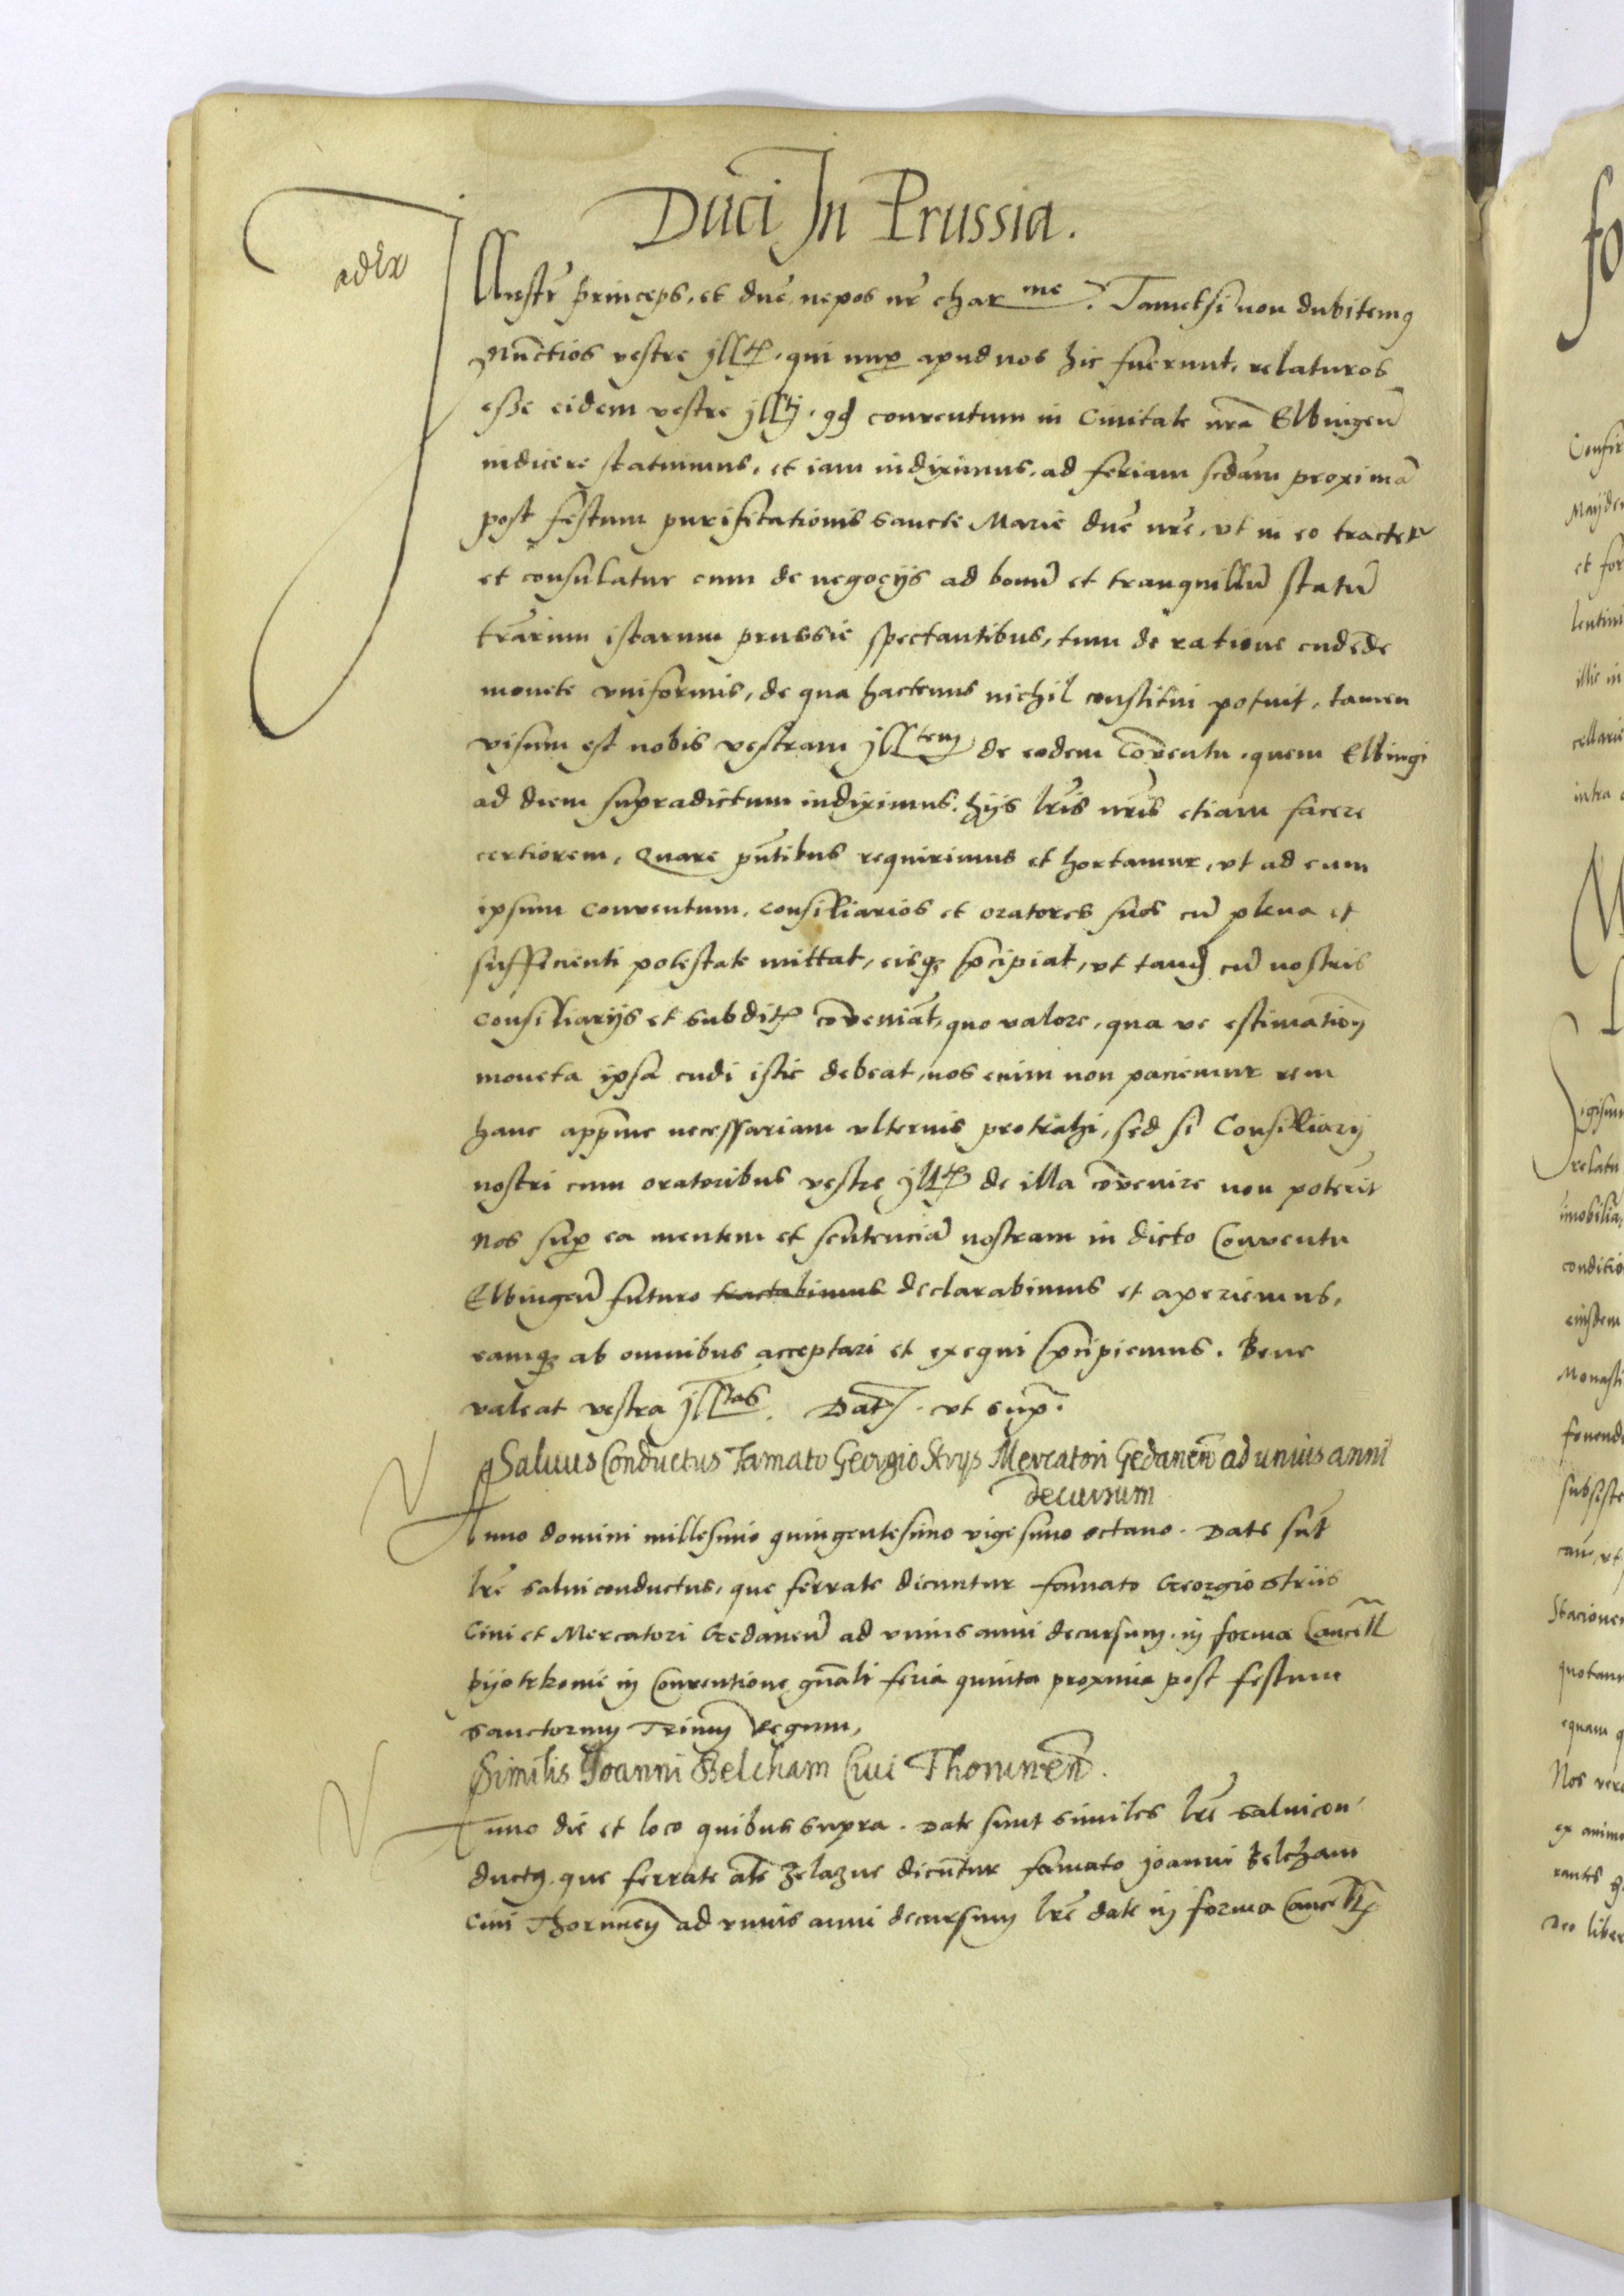 Duci In Prussia.
ad Ex
Illustr̃ princeps, et dnẽ, nepos nr̃ char me. Tametsi non dubitemꝰ
Nuñctios vestre jllᵗⁱˢ, qui nuꝑ apud nos hic fuerunt, relaturos
esse eidem vestre jllᵗⁱ, qd conventum in Civitate nrã Elbingeñ
indicere statuimus, et iam indiximus, ad feriam scdãm proximã
post festum purificationis sancte Marie dnẽ nrẽ, vt in eo tractet᷑
et consulatur cum de negocijs ad bonũ et tranquillũ statũ
trãrum istarum prussie spectantibus, tum de ratione cudẽde
monete vniformis, de qua hactenus nichil constitui potuit, tamen
visum est nobis vestram jllᵗᵉᵐ de eodem Cõventu, quem Elbingi
ad diem supradictum indiximus, hijs lrĩs nrĩs etiam facere
certiorem, Quare pñtibus requirimus et hortamur, vt ad eum
ipsum conventum, consiliarios et oratores suos cũ plena et
sufficienti potestate mittat, eisqꝫ p̃cipiat, vt tand cũ nostris
consiliarijs et subdit̃ cõveniãt, quo valore, qua ve estimatioñ
moneta ipsa cudi istic debeat, nos enim non paciemur rem
hanc apprĩme necessariam vlterius protrahi, sed si Consiliarij
nostri cum oratoribus vestre jllᵗⁱˢ de illa cõvenire non poterĩt
Nos suꝑ ea mentem et sentenciã nostram in dicto Conventu
Elbingeñ futuro tractabimus declarabimus et aperiemus,
eamqꝫ ab omnibus acceptari et exequi p̃cipiemus. Bene
valeat vestra jllᵗᵃˢ. Dat̃. vt sup̃.
Saluus Conductus Famato Georgio Strys Mercatori Gedaneñ ad unius anni
decursum
Anno domini millesimo quingentesimo vigesimo octavo. Date sũt
lrẽ salui conductus, que ferrate dicuntur famato Georgio Striis
Civi et Mercatori Gedaneñ ad vnius anni decursum, in forma Cancell̃
pijotrkomie in Conventione gnãli feria quinta proxima post festum
sanctorum Trium Regum,
Similis Joanni Belcham Civi Thoruneñ.
Anno die et loco quibus supra. Date sunt similes lrẽ salui con
ductꝰ, que ferrate alẽ zelazne dicũtur famato joanni Belcham
Civi Thoruneñ ad vnius anni decursum lrẽ date in forma Cancell̃